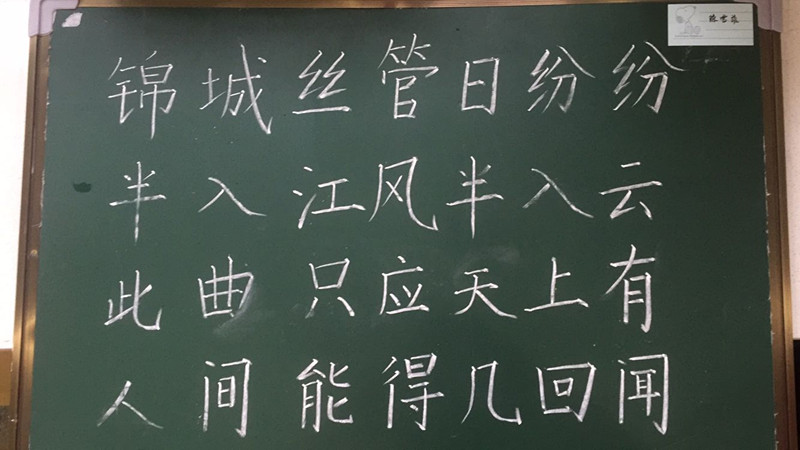 锦城丝管日纷纷
半入江风半入云
此曲只应天上有
人间能得几回闻